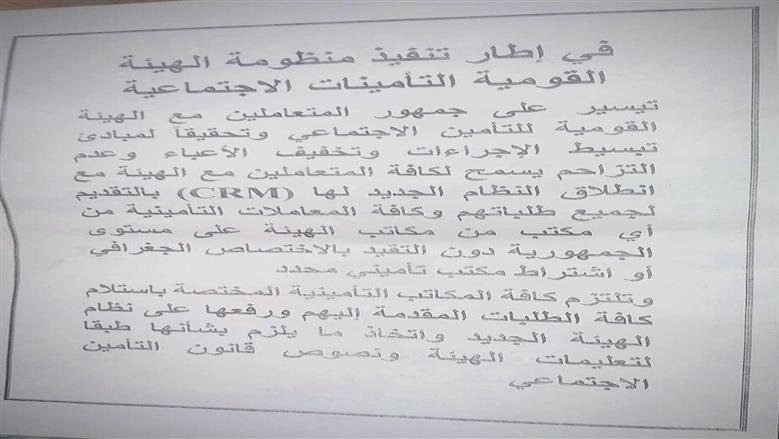 في إطار تنفيذ منظومة الهيئة
القومية التأمينات الاجتماعية
تيسير على جمهور المتعاملين مع الهيئة
القومية للتأمين الاجتماعي وتحقيقاً لمبادئ
تبسيط الإجراءات وتخفيف الأعباء وعدم
التزاحم يسمح لكافة المتعاملين مع الهيئة مع
انطلاق النظام الجديد لها (CRM) بالتقديم
لجميع طلباتهم وكافة المعاملات التأمينية من
أي مكتب من مكاتب الهيئة على مستوى
الجمهورية دون التقيد بالاختصاص الجغرافي
أو اشتراط مكتب تأميني محدد.
وتلتزم كافة المكاتب التأمينية المختصة باستلام
كافة الطلبات المقدمة إليهم ورفعها على نظام
الهيئة الجديد واتخاذ ما يلزم بشأنها طبقا
لتعليمات الهيئة ونصوص قانون التأمين
الاجتماعي